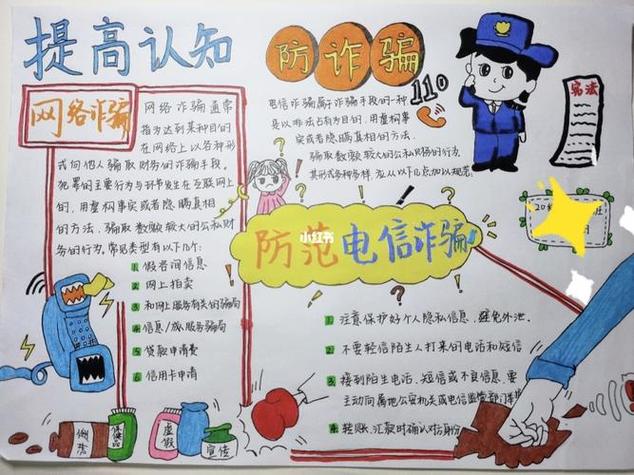 提高认知
防诈骗
网络诈骗
网络诈骗通常
指为达到某种目的
在网络上以各种形
式向他人骗取财务的诈骗手段。
犯罪的主要行为与环节发生在互联网上
的，用虚构事实或者隐瞒真相
的方法，骗取数额较大的公私财
务的行为。常见类型有以下几个：
1 假者间信息
2 网上拍卖
3 和网上服务有关的骗局
4 信息/成服务骗局
5 贷款申请费
6 信用卡申请
电信诈骗属于诈骗手段的一种
是以非法占有为目的，用虚构事
实或者隐瞒真相的方法，
骗取数额较大的公私财务的行为，
其形式多种多样，应从以下几点加以规范：
110
宪法
20
班
小红书
防范电信诈骗
1. 注意保护好个人隐私信息，避免外泄。
2. 不要轻信陌生人打来的电话和短信
3 接到陌生电话、短信或不良信息，要
主动向属地公安机关或电信监管部门
4. 转账、汇款时确认对方身份
保健品
虚假
宣传